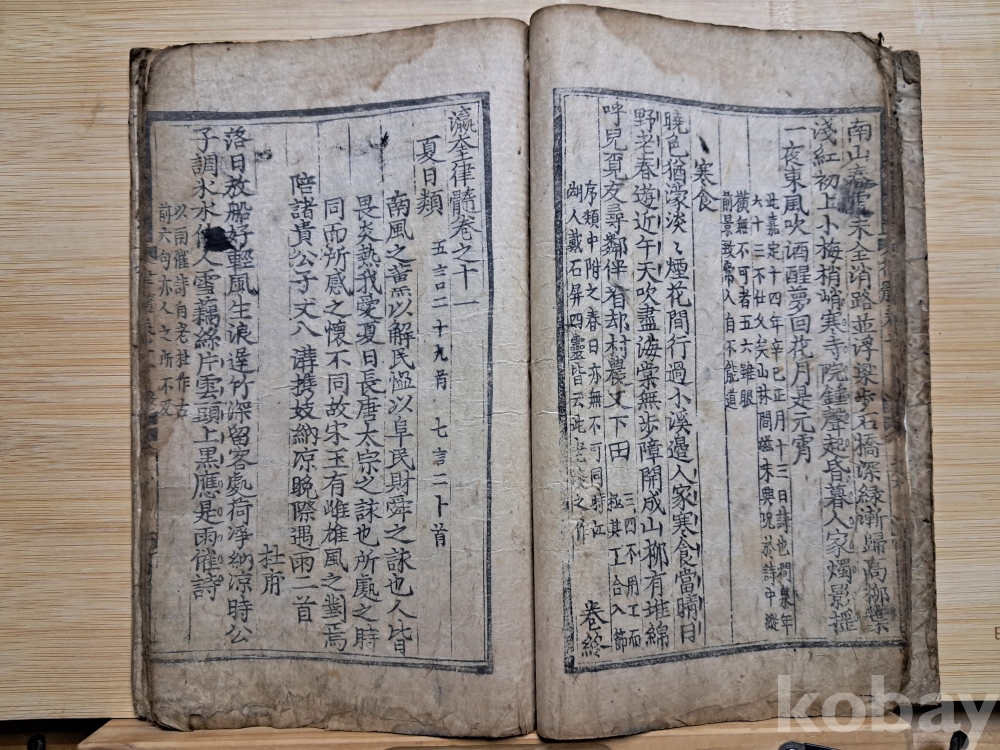 南山春雪未全消路並浮梁步石橋深綠漸歸高柳葉
淺紅初上小梅梢峭寒寺院鍾聲起昏暮人家燭影搖
一夜東風吹酒醒夢回花月是元宵
此嘉定十四年辛巳正月十三日詩也澗泉年
六十三不仕久矣山林間滋味興況於詩中縱
橫無不可者五六雖眼
前景致常人自不能道
寒食
曉色猶濛淡〻煙花間行過小溪邊人家寒食當晴日
野老春遊近午天吹盡海棠無步障開成山柳有堆綿
呼兒覓友尋鄰伴看却村農又下田
三四不用工而
極其工合入節
序類中附之春日亦無不可同時江
湖人戴石屏四靈皆云
之作
卷終
瀛奎律髓卷之十一
夏日類
五言二十九首 七言二十首
南風之薰以解民慍以阜民財舜之詠也人皆
畏炎熱我愛夏日長唐太宗之詠也所處之時
同而所感之懷不同故宋玉有雌雄風之對焉
陪諸貴公子丈八溝携妓納凉晚際遇雨二首
杜甫
落日放船好輕風生浪遲竹深留客處荷淨納凉時公
子調氷水佳人雪藕絲片雲頭上黑應是雨催詩
以雨催詩自老杜作古
前六句亦人之所不及